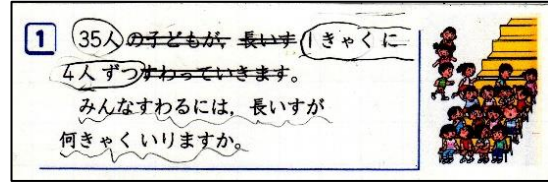 1 35人の子どもが，長いす1きゃくに
4人ずつすわっていきます。
みんなすわるには，長いすが
何きゃくいりますか。